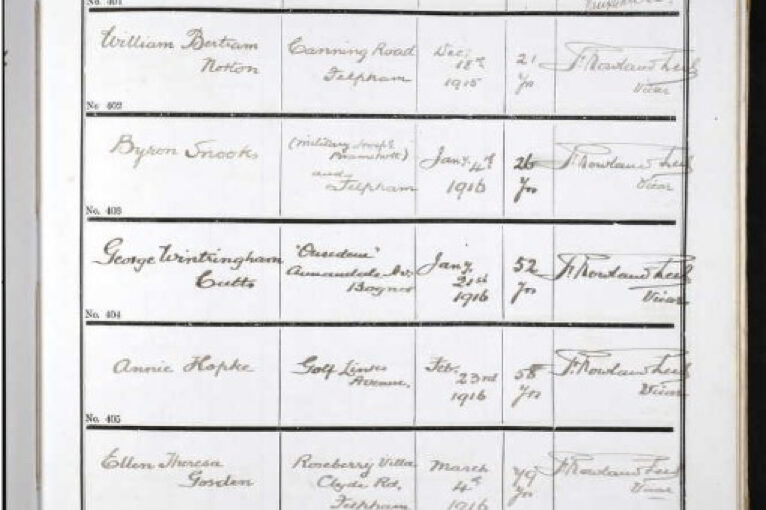 No. 401
William Bertram
Norton
Canning Road
Felpham
Dec.
18th
1915
21
Yrs
Vicar
No. 402
Byron Snooks
(Military Hosptl
Bramshott)
and
Felpham
Jany. 4th
1916
26
Yrs
Vicar
No. 403
George Wintringham
Cutts
Annandale Av.
Bognor
Jany.
21st
1916
52
Yrs
Vicar
No. 404
Annie Hopke
Golf Links
Avenue.
Feb.
23rd
1916
58
Yrs
Vicar
No. 405
Ellen Theresa
Gosden
Roseberry Villa
Clyde Rd.
Felpham
March
4th
1916
79
Yrs
Vicar